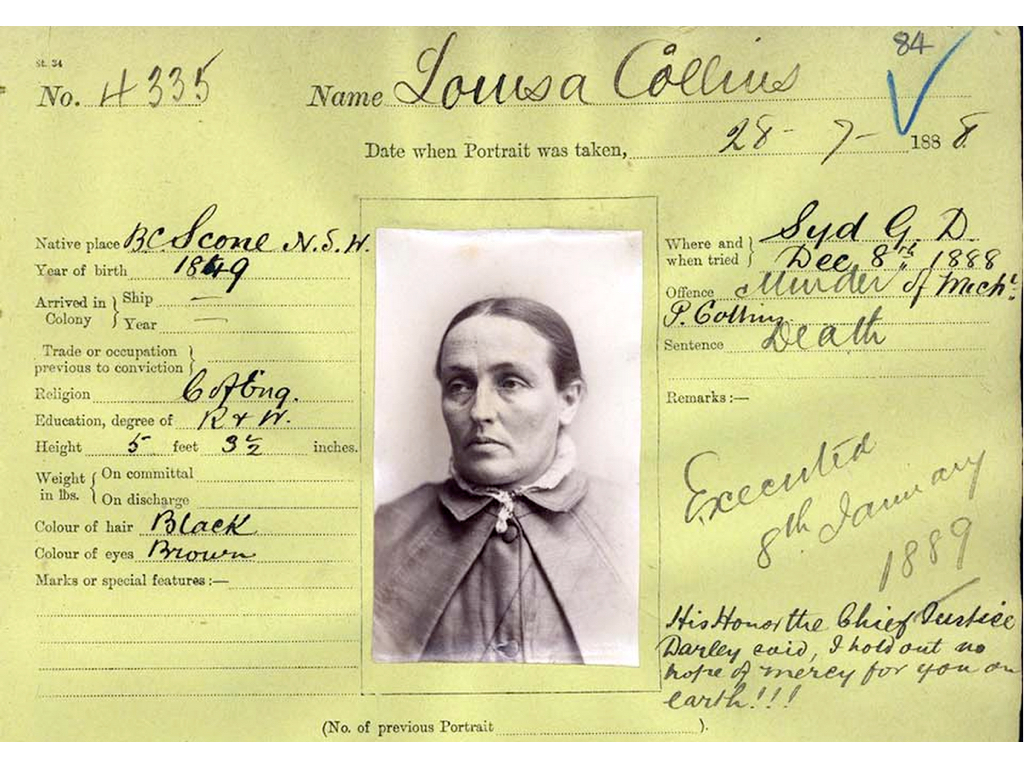 84
St. 34
No. 4335 Name Louisa Collins
Date when Portrait was taken, 28-7-1888
Native place B.C. Scone N.S.W.
Year of birth 1849
Arrived in Colony } Ship —
Year —
Trade or occupation previous to conviction }
Religion C of Eng.
Education, degree of R & W.
Height 5 feet 3½ inches.
Weight in lbs. { On committal
On discharge
Colour of hair Black
Colour of eyes Brown
Marks or special features :—
Where and when tried } Syd G D.
Dec 8th 1888
Offence Murder of Michl.
P. Collins
Sentence Death
Remarks :—
Executed
8th January
1889
His Honor the Chief Justice
Darley said, I hold out no
hope of mercy for you on
earth!!!
(No. of previous Portrait ).